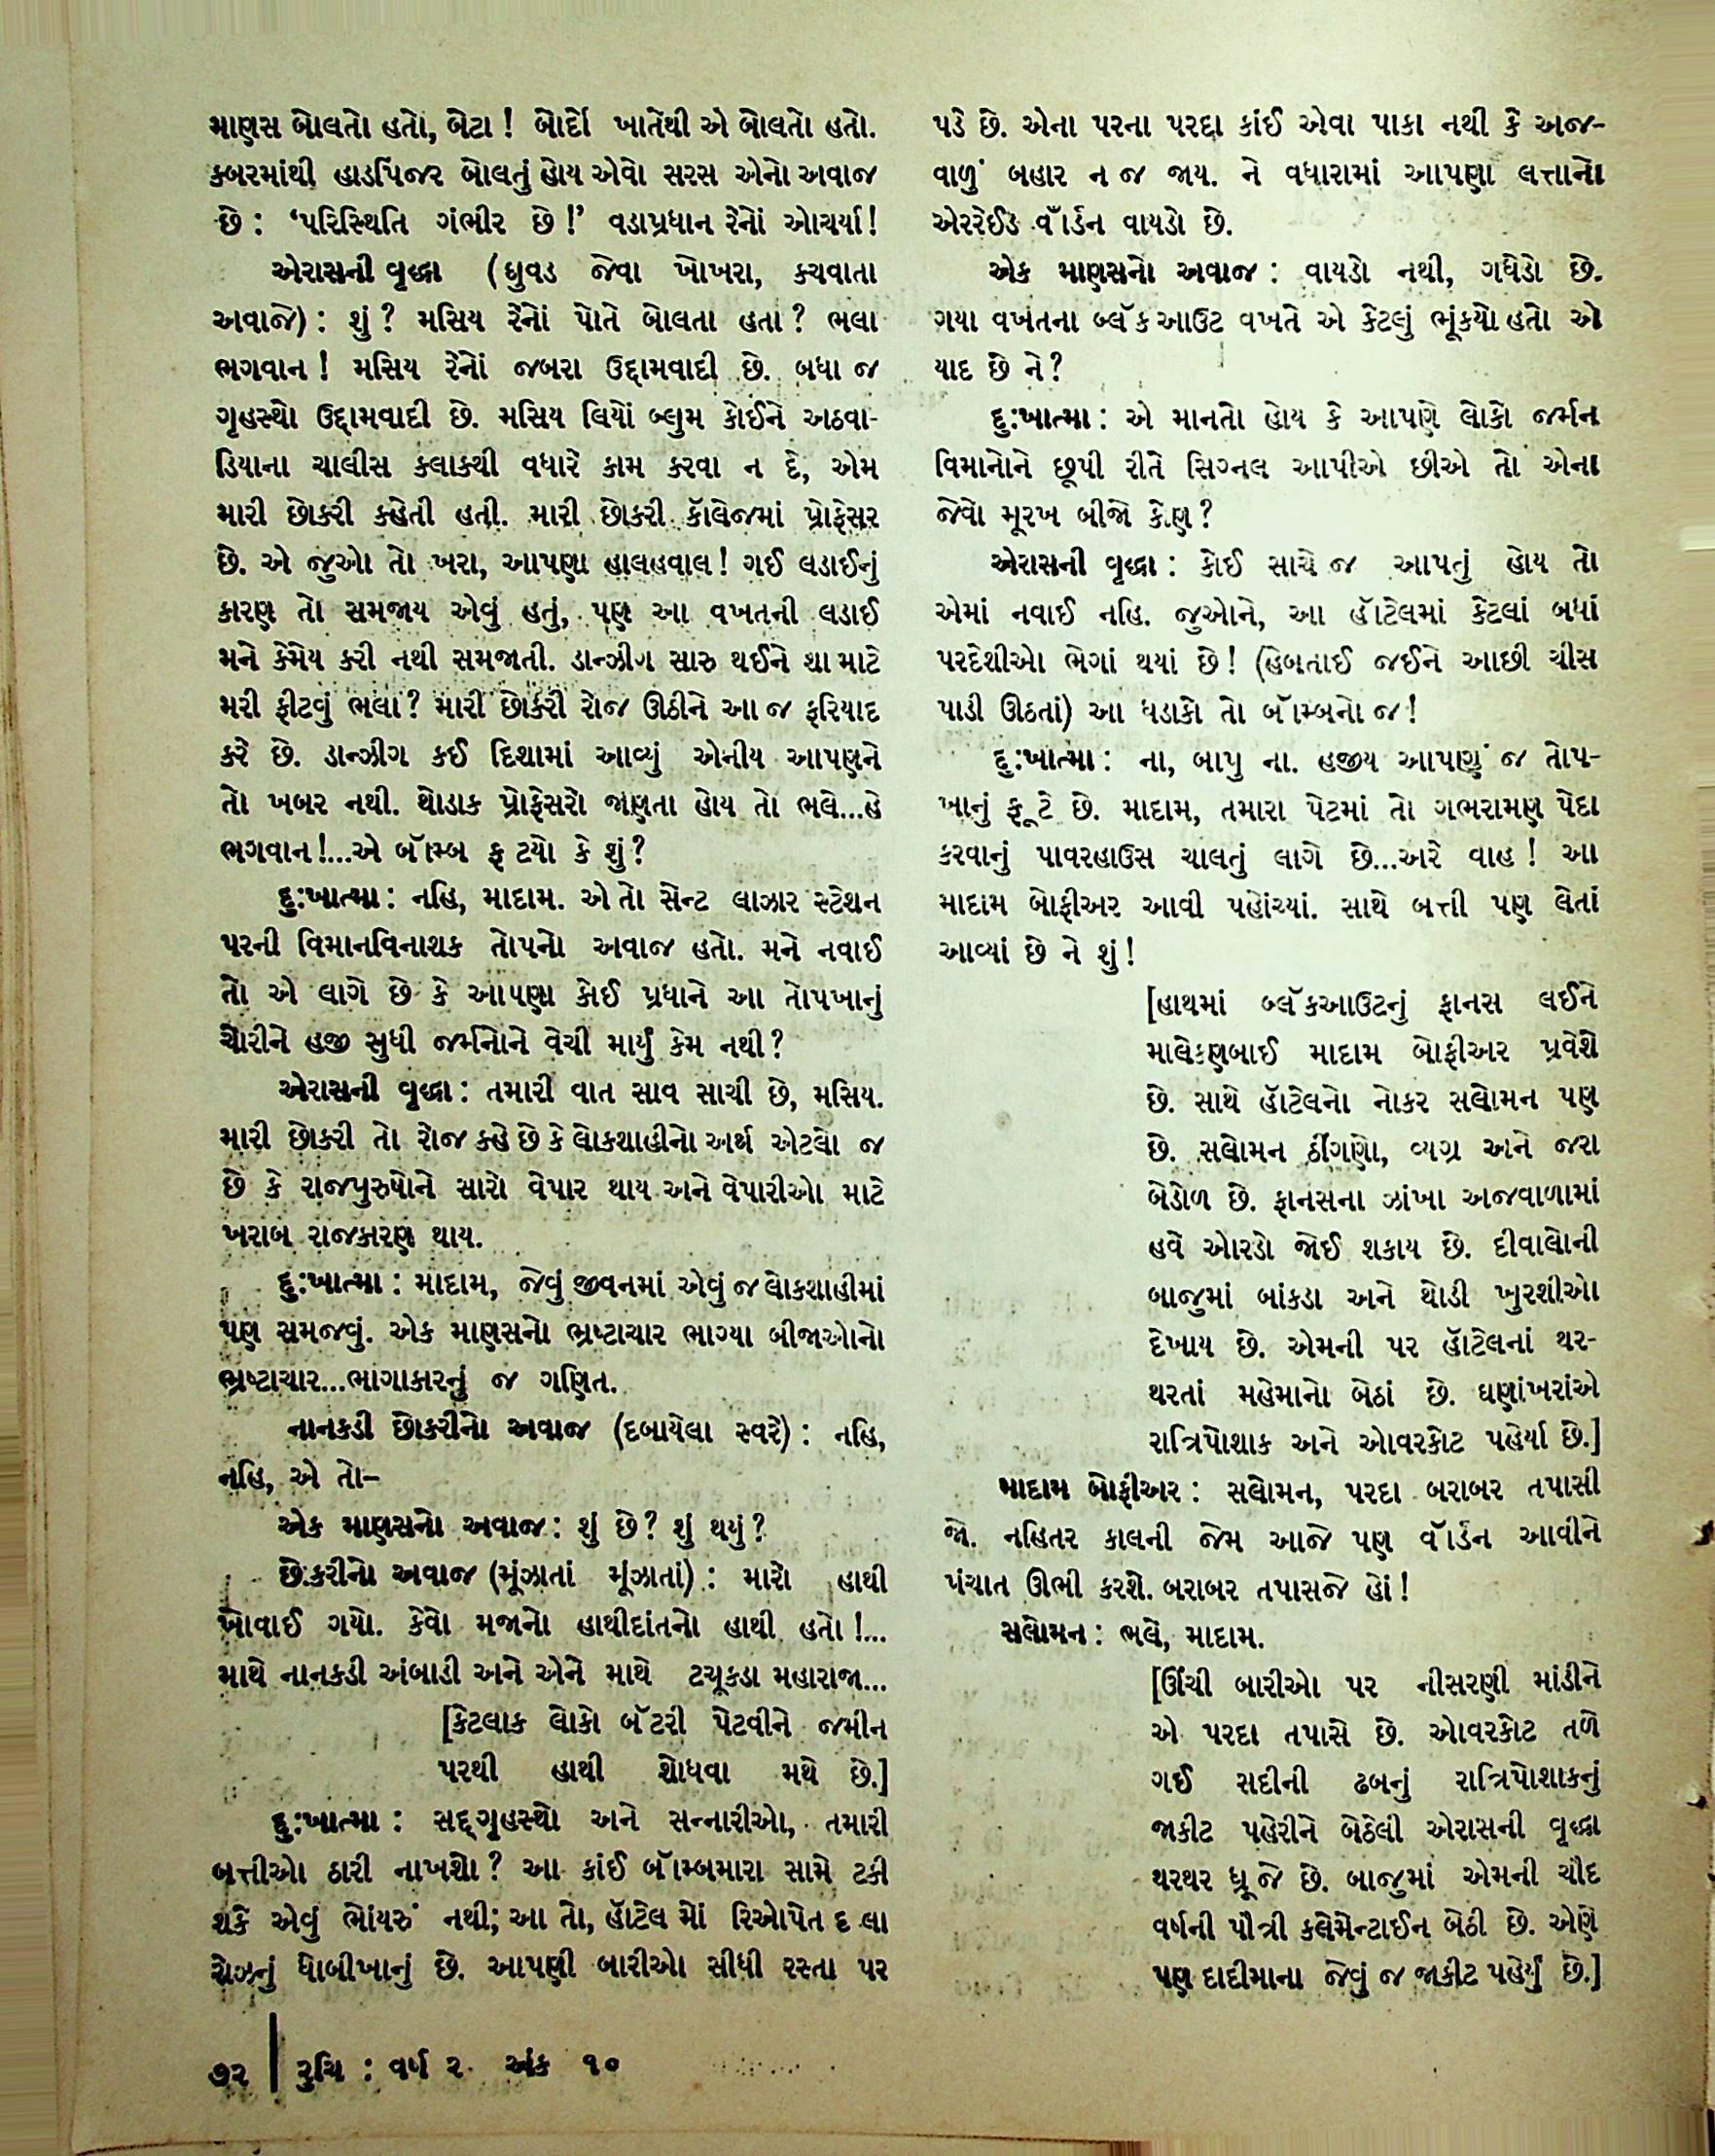 માણસ બોલતો હતો, બેટા! બોર્દો ખાતેથી એ બોલતો હતો.
કબરમાંથી હાડપિંજર બોલતું હોય એવો સરસ એનો અવાજ
છે: ‘પરિસ્થિતિ ગંભીર છે!’ વડાપ્રધાન રેનોં ઓચર્યા!
એરાસની વૃદ્ધા (ઘુવડ જેવા ખોખરા, કચવાતા
અવાજે): શું? મસિય રેનોં પોતે બોલતા હતા? ભલા
ભગવાન! મસિય રેનોં જબરા ઉદ્દામવાદી છે. બધા જ
ગૃહસ્થો ઉદ્દામવાદી છે. મસિય લિયોં બ્લુમ કોઈને અઠવા-
ડિયાના ચાલીસ કલાકથી વધારે કામ કરવા ન દે, એમ
મારી છોકરી કહેતી હતી. મારી છોકરી કૉલેજમાં પ્રોફેસર
છે. એ જુઓ તો ખરા, આપણા હાલહવાલ! ગઈ લડાઈનું
કારણ તો સમજાય એવું હતું, પણ આ વખતની લડાઈ
મને કેમેય કરી નથી સમજાતી. ડાન્ઝીગ સારુ થઈને શા માટે
મરી ફીટવું ભલા? મારી છોકરી રોજ ઊઠીને આ જ ફરિયાદ
કરે છે. ડાન્ઝીગ કઈ દિશામાં આવ્યું એનીય આપણને
તો ખબર નથી. થોડાક પ્રોફેસરો જાણતા હોય તો ભલે...હે
ભગવાન!...એ બૉમ્બ ફૂટયો કે શું?
દુ:ખાત્મા: નહિ, માદામ. એ તો સેન્ટ લાઝાર સ્ટેશન
પરની વિમાનવિનાશક તોપનો અવાજ હતો. મને નવાઈ
તો એ લાગે છે કે આપણા કોઈ પ્રધાને આ તોપખાનું
ચોરીને હજી સુધી જર્મનોને વેચી માર્યું કેમ નથી?
એરાસની વૃદ્ધા: તમારી વાત સાવ સાચી છે, મસિય.
મારી છોકરી તો રોજ કહે છે કે લોકશાહીનો અર્થ એટલો જ
છે કે રાજપુરુષોને સારો વેપાર થાય અને વેપારીઓ માટે
ખરાબ રાજકારણ થાય.
દુ:ખાત્મા: માદામ, જેવું જીવનમાં એવું જ લોકશાહીમાં
પણ સમજવું. એક માણસનો ભ્રષ્ટાચાર ભાગ્યા બીજાઓનો
ભ્રષ્ટાચાર...ભાગાકારનું જ ગણિત.
નાનકડી છોકરીનો અવાજ (દબાયેલા સ્વરે): નહિ,
નહિ, એ તો–
એક માણસનો અવાજ: શું છે? શું થયું?
છોકરીનો અવાજ (મૂંઝાતાં મૂંઝાતાં): મારો હાથી
ખોવાઈ ગયો. કેવો મજાનો હાથીદાંતનો હાથી હતો!...
માથે નાનકડી અંબાડી અને એને માથે ટચૂકડા મહારાજા...
[કેટલાક લોકો બૅટરી પેટવીને જમીન
પરથી હાથી શોધવા મથે છે.]
દુ:ખાત્મા: સદ્ગૃહસ્થો અને સન્નારીઓ, તમારી
બત્તીઓ ઠારી નાખશો? આ કાંઈ બૉમ્બમારા સામે ટકી
શકે એવું ભોંયરું નથી; આ તો, હૉટેલ મોં રિઓપેત દ લા
શેઝનું ધોબીખાનું છે. આપણી બારીઓ સીધી રસ્તા પર
૭૨ | રુચિ : વર્ષ ૨ અંક ૧૦
પડે છે. એના પરના પરદા કાંઈ એવા પાકા નથી કે અજ-
વાળું બહાર ન જ જાય. ને વધારામાં આપણા લત્તાનો
એરરેઈડ વૉર્ડન વાયડો છે.
એક માણસનો અવાજ: વાયડો નથી, ગધેડો છે.
ગયા વખતના બ્લૅકઆઉટ વખતે એ કેટલું ભૂંકયો હતો એ
યાદ છે ને?
દુ:ખાત્મા: એ માનતો હોય કે આપણે લોકો જર્મન
વિમાનોને છૂપી રીતે સિગ્નલ આપીએ છીએ તો એના
જેવો મૂરખ બીજો કોણ?
એરાસની વૃદ્ધા: કોઈ સાચે જ આપતું હોય તો
એમાં નવાઈ નહિ. જુઓને, આ હૉટેલમાં કેટલાં બધાં
પરદેશીઓ ભેગાં થયાં છે! (હેબતાઈ જઈને આછી ચીસ
પાડી ઊઠતાં) આ ધડાકો તો બૉમ્બનો જ!
દુ:ખાત્મા: ના, બાપુ ના. હજીય આપણું જ તોપ-
ખાનું ફૂટે છે. માદામ, તમારા પેટમાં તો ગભરામણ પેદા
કરવાનું પાવરહાઉસ ચાલતું લાગે છે...અરે વાહ! આ
માદામ બોફીઅર આવી પહોંચ્યાં. સાથે બત્તી પણ લેતાં
આવ્યાં છે ને શું!
[હાથમાં બ્લૅકઆઉટનું ફાનસ લઈને
માલેકણબાઈ માદામ બોફીઅર પ્રવેશે
છે. સાથે હૉટેલનો નોકર સલોમન પણ
છે. સલોમન ઠીંગણો, વ્યગ્ર અને જરા
બેડોળ છે. ફાનસના ઝાંખા અજવાળામાં
હવે ઓરડો જોઈ શકાય છે. દીવાલોની
બાજુમાં બાંકડા અને થોડી ખુરશીઓ
દેખાય છે. એમની પર હૉટેલનાં થર-
થરતાં મહેમાનો બેઠાં છે. ઘણાંખરાંએ
રાત્રિપોશાક અને ઓવરકોટ પહેર્યા છે.]
માદામ બોફીઅર: સલોમન, પરદા બરાબર તપાસી
જો. નહિતર કાલની જેમ આજે પણ વૉર્ડન આવીને
પંચાત ઊભી કરશે. બરાબર તપાસજે હોં!
સલોમન: ભલે, માદામ.
[ઊંચી બારીઓ પર નીસરણી માંડીને
એ પરદા તપાસે છે. ઓવરકોટ તળે
ગઈ સદીની ઢબનું રાત્રિપોશાકનું
જાકીટ પહેરીને બેઠેલી એરાસની વૃદ્ધા
થરથર ધ્રૂજે છે. બાજુમાં એમની ચૌદ
વર્ષની પૌત્રી કલેમેન્ટાઈન બેઠી છે. એણે
પણ દાદીમાના જેવું જ જાકીટ પહેર્યું છે.]